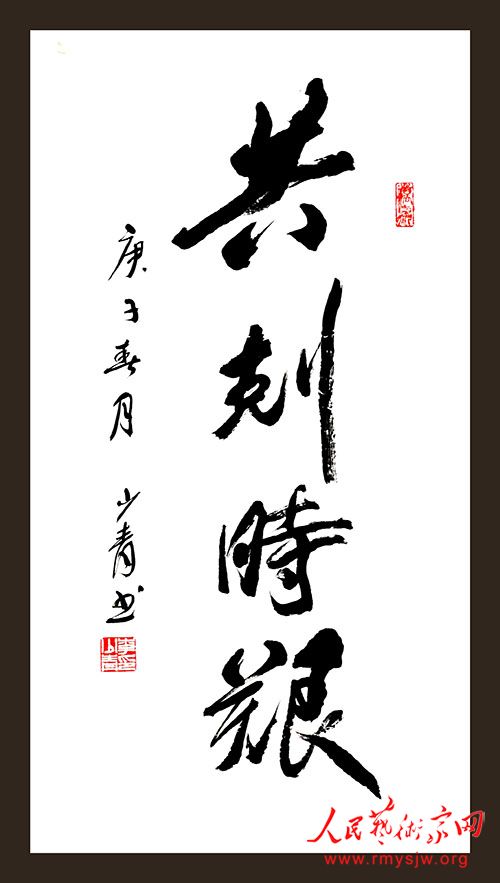 共剋時艱
庚子春月 山青书
人民藝術家网
www.rmysjw.org